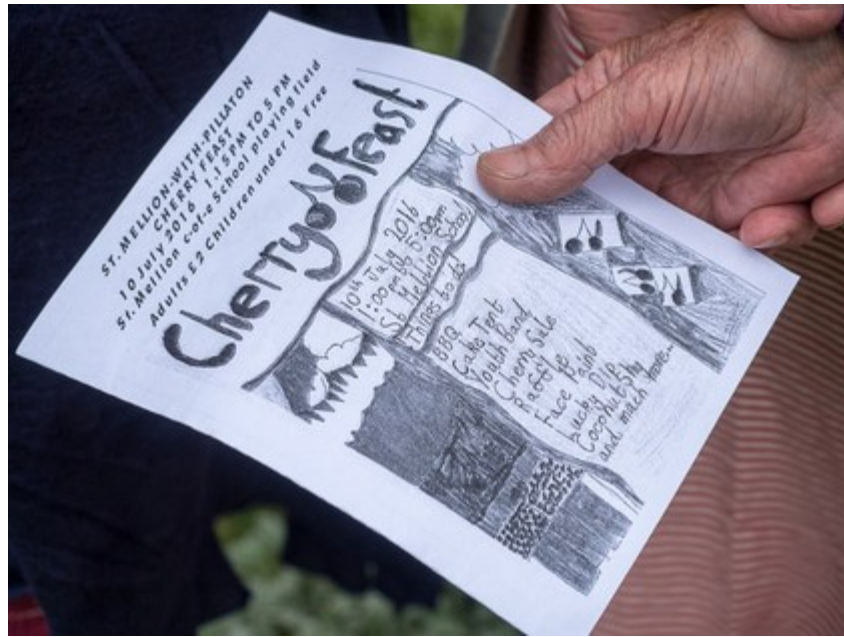 ST. MELLION-WITH-PILLATON
CHERRY FEAST
10 July 2016 1.15PM TO 5 PM
St. Mellion c-of-e School playing field
Adults £2 Children under 16 Free
Cherry Feast
10th July 2016
1:00pm to 5:00pm
St Mellion School
Things to do:
BBQ
Cake Tent
Youth Band
Cherry Sale
Raffle
Face Paint
Lucky Dip
Coconut Shy
and much more...